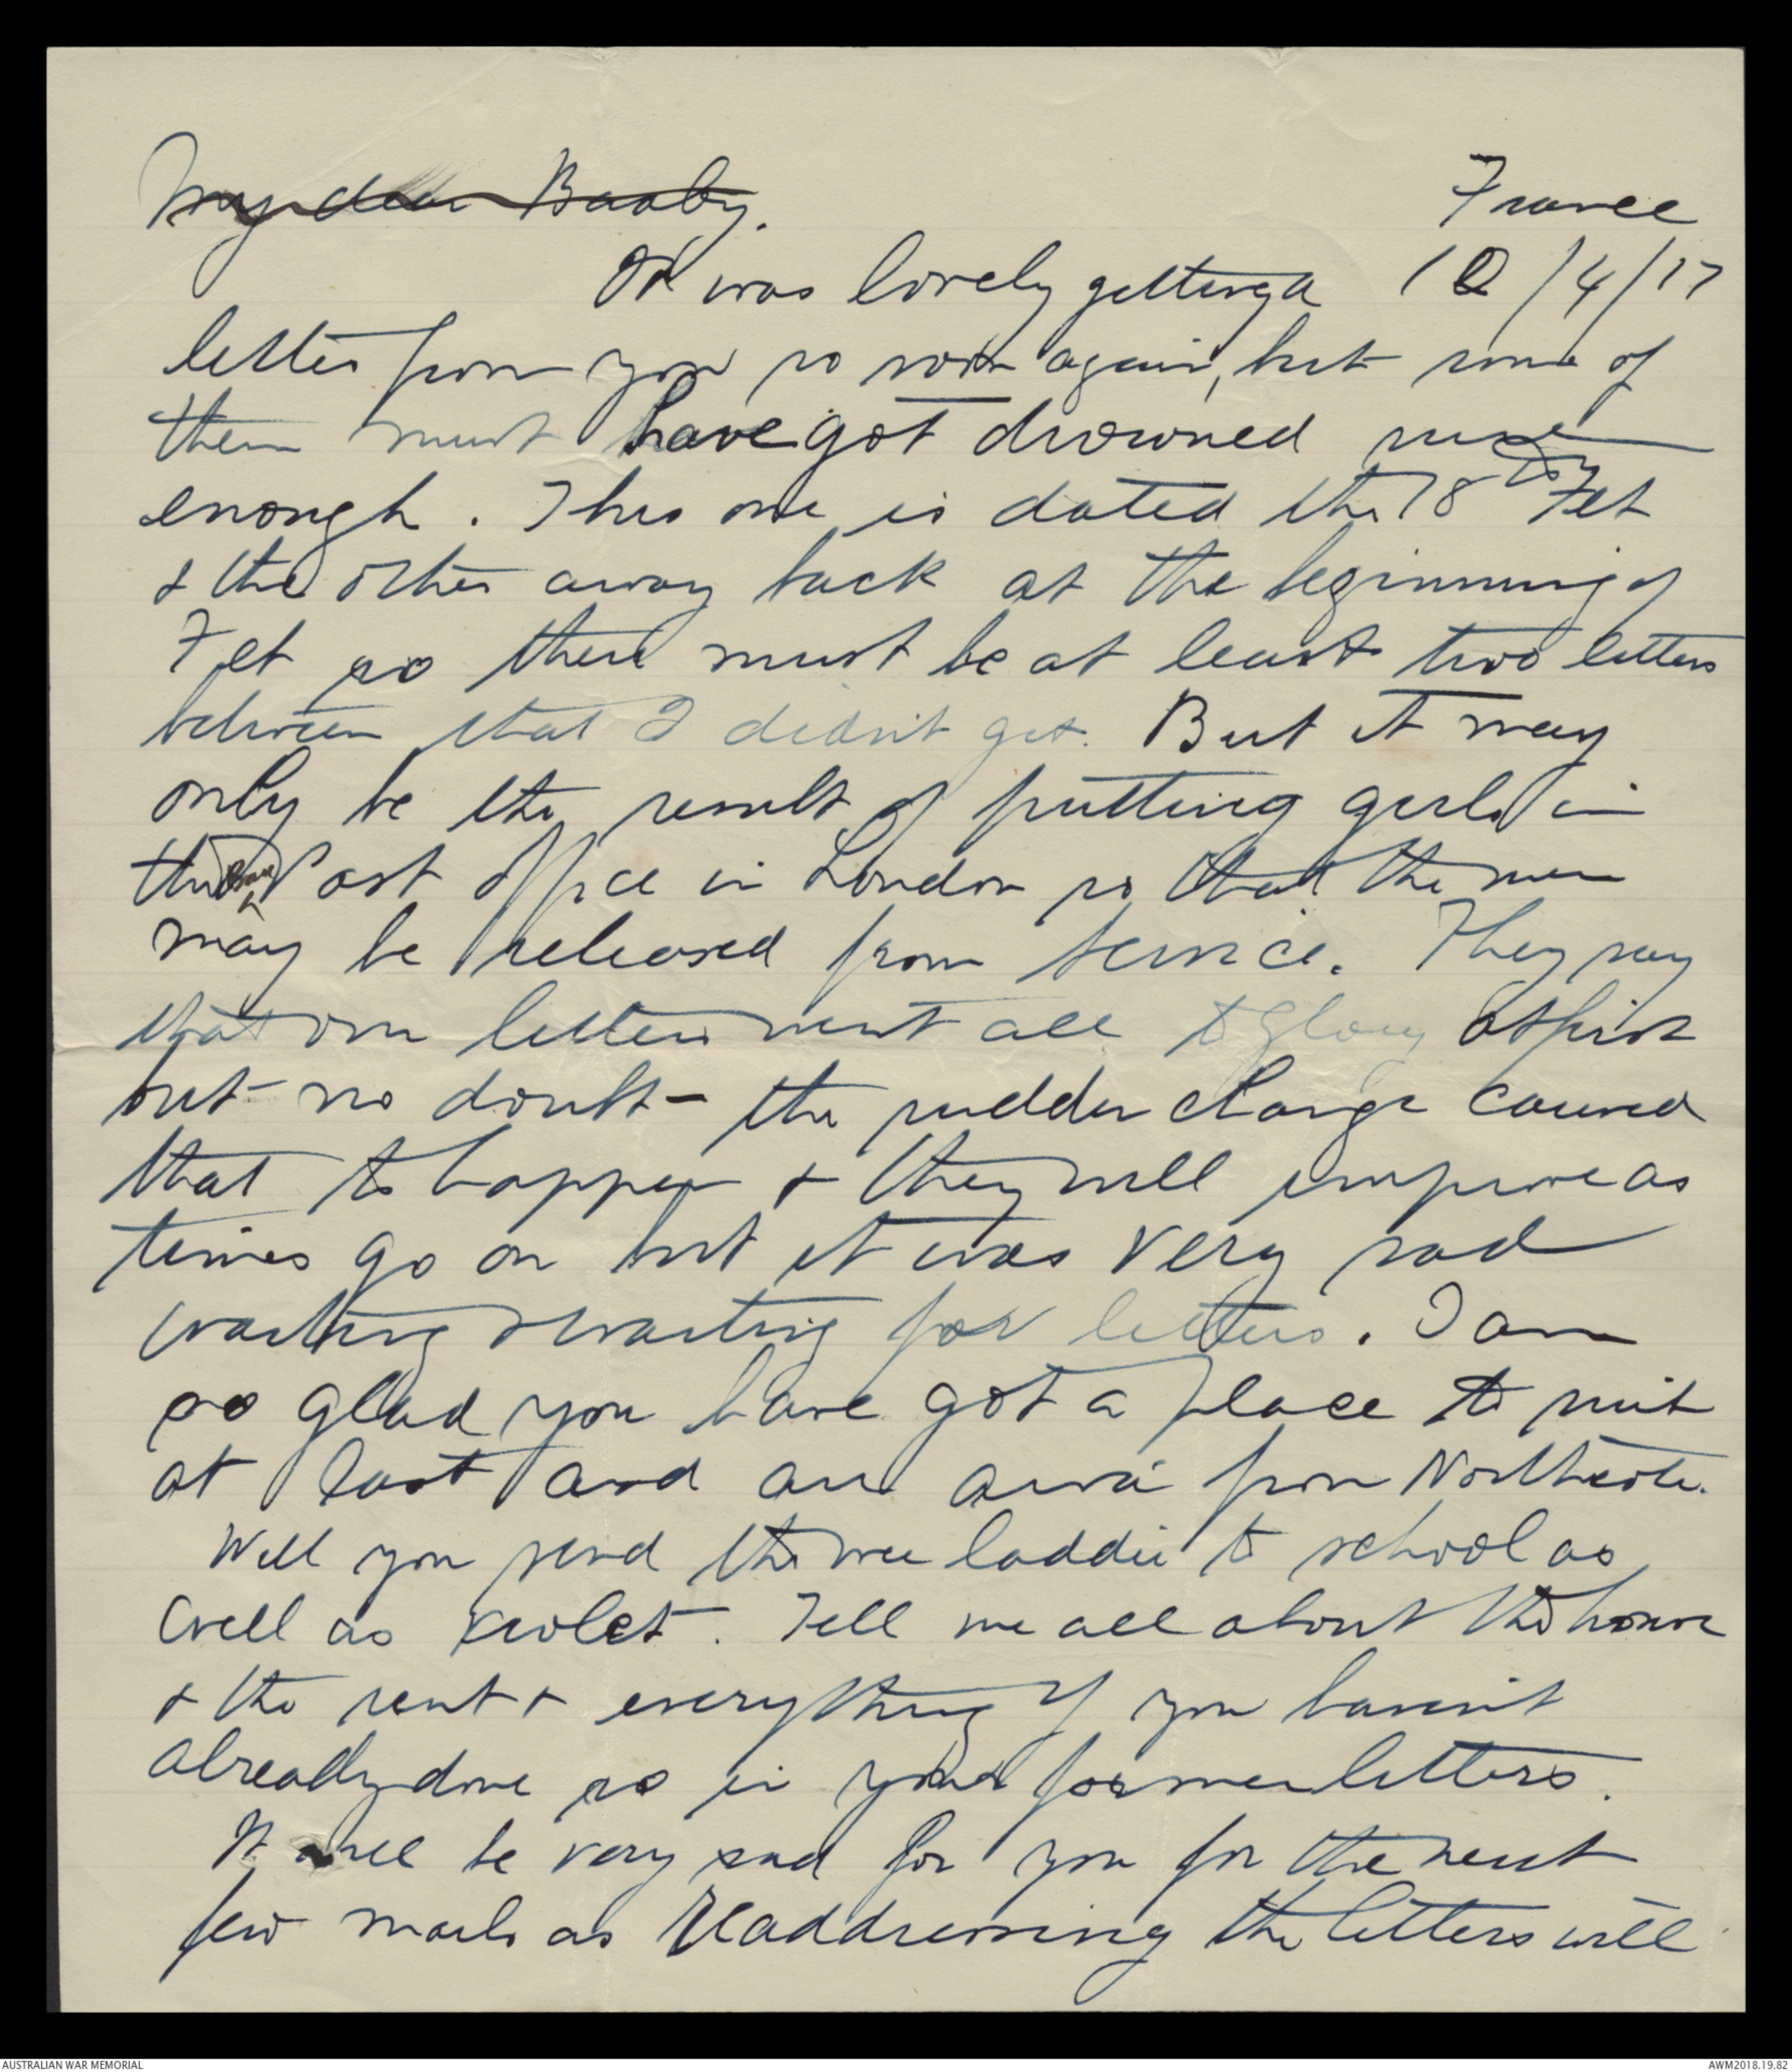 My dear Baaby.
France
10/4/17
It was lovely getting a
letter from you so soon again, but some of
them must have got drowned sure
enough. This one is dated the 18th Feb
& the other away back at the beginning of
Feb so there must be at least two letters
between that I didn't get. But it may
only be the result of putting girls in
the Post Office in London so that the men
may be released from service. They say
that our letters went all to glory at first
but no doubt - the sudden change caused
that to happen & they will improve as
times go on but it was very sad
waiting & waiting for letters. I am
so glad you have got a place to suit
at last and are awa' from Northcote.
Will you send the wee laddie to school as
well as Violet. Tell me all about the house
& the rent & everything if you haven't
already done so in your former letters.
It will be very sad for you for the next
few mails as Readdressing the letters will
AUSTRALIAN WAR MEMORIAL
AWM2018.19.82